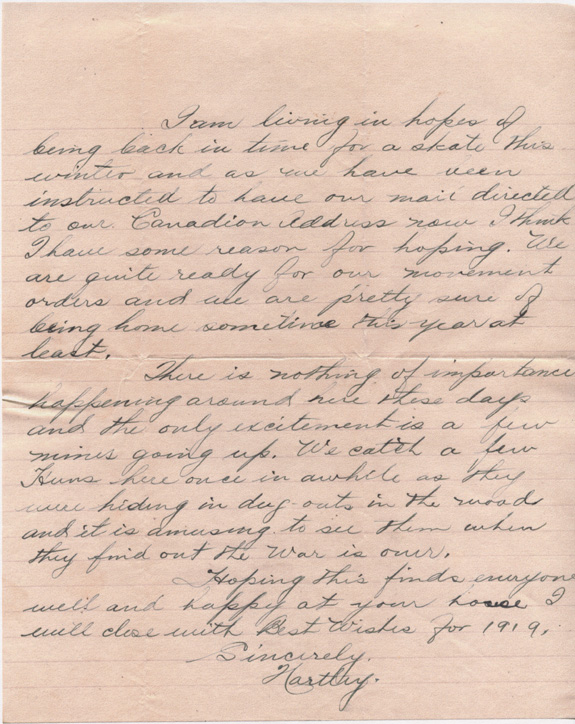 I am living in hopes of
being back in time for a skate this
winter and as we have been
instructed to have our mail directed
to our Canadian Address now I think
I have some reason for hoping. We
are quite ready for our movement
orders and we are pretty sure of
being home sometime this year at
least.
There is nothing of importance
happening around here these days
and the only excitement is a few
mines going up. We catch a few
Huns here once in awhile as they
were hiding in dug-outs in the woods
and it is amusing to see them when
they find out the War is over.
Hoping this finds everyone
well and happy at your house I
will close with Best Wishes for 1919.
Sincerely,
Hartley.